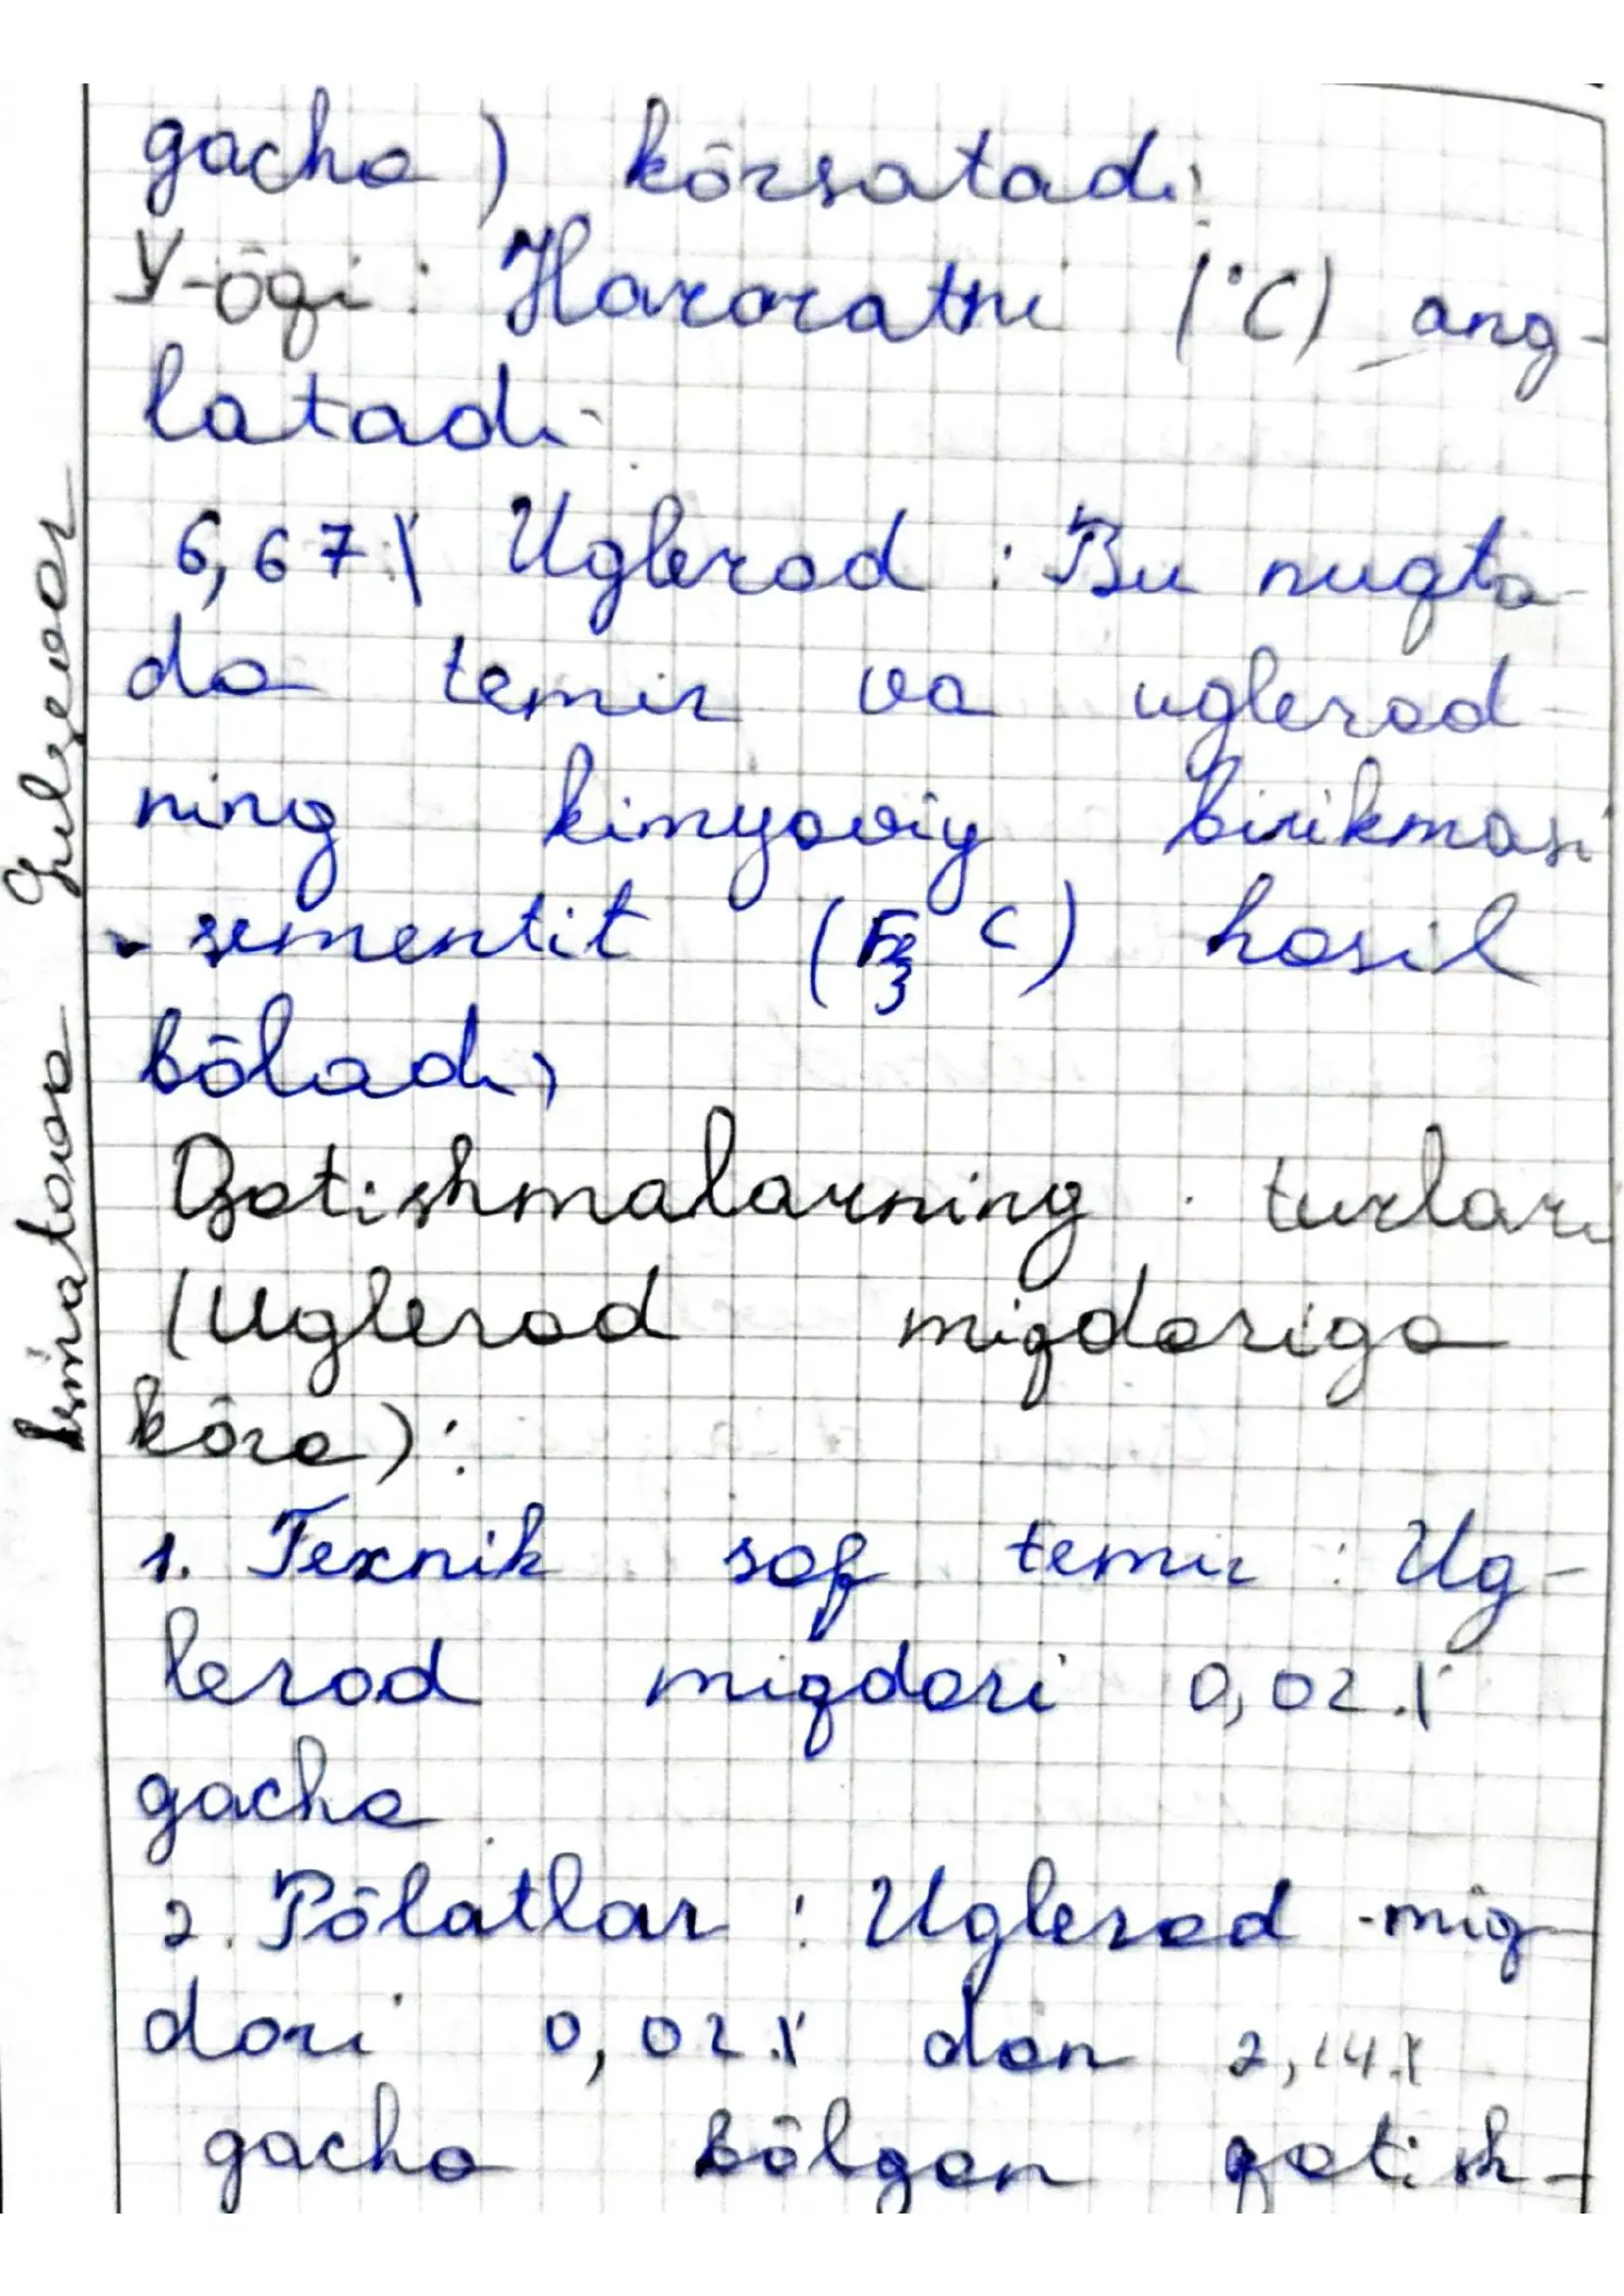 gacha) kōrsatadi
Y-ōqi: Haroratni (°C) ang-
latadi.
6,67% Uglerod : Bu nuqta-
da temir va uglerod
ning kimyoviy birikmasi
- sementit (Fe₃C) hosil
bōladi,
Qotishmalarning turlari
(Uglerod miqdoriga
kōra):
1. Texnik sof temir : Ug-
lerod miqdori 0,02%
gacha
2. Pōlatlar : Uglerod miq
dori 0,02% dan 2,14%
gacha bōlgan qotish-
Ismatova